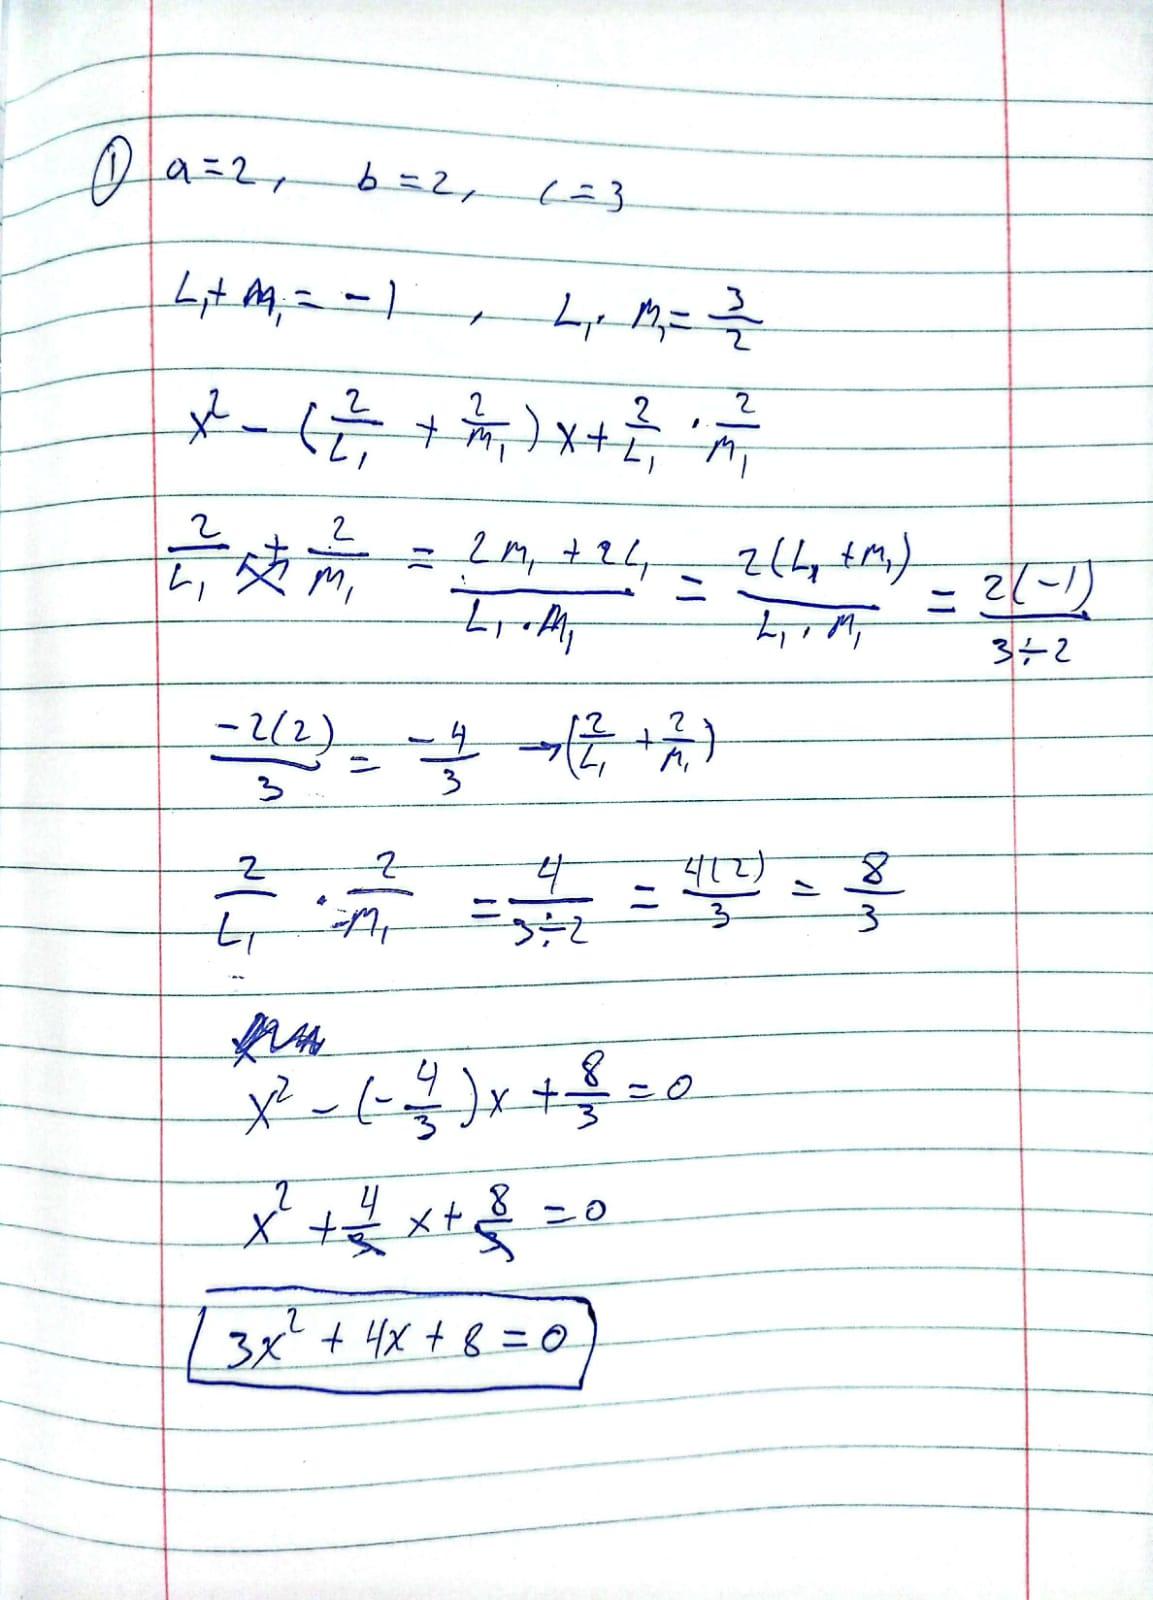 ① a=2, b=2, c=3
L₁+M₁=-1, L₁·M₁=3/2
x²-(2/L₁+2/M₁)x+2/L₁·2/M₁
2/L₁+2/M₁=(2M₁+2L₁)/(L₁·M₁)=2(L₁+M₁)/(L₁·M₁)=2(-1)/(3÷2)
-2(2)/3=-4/3→(2/L₁+2/M₁)
2/L₁·2/M₁=4/(3÷2)=4(2)/3=8/3
x²-(-4/3)x+8/3=0
x²+4/3x+8/3=0
3x²+4x+8=0